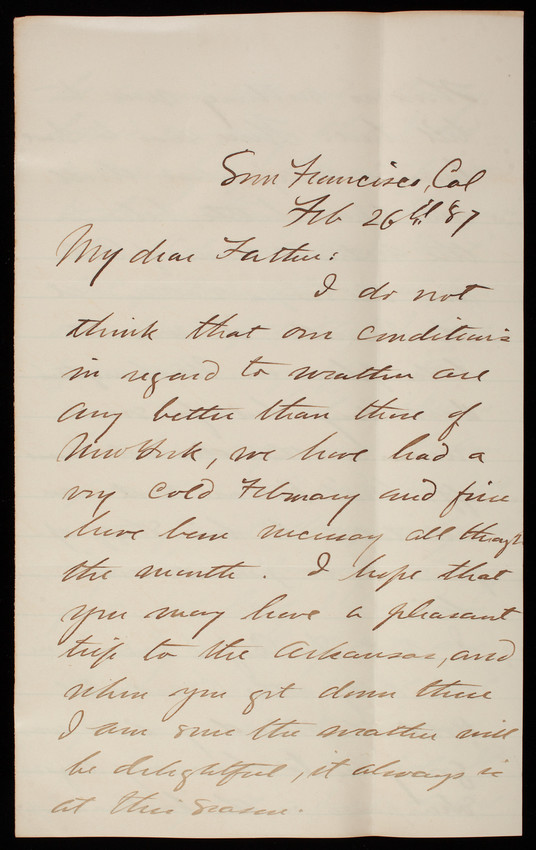 San Francisco, Cal
Feb 26th '87
My dear Father:
I do not
think that our conditions
in regard to weather are
any better than those of
New York, we have had a
very cold February and fires
have been necessary all through
the month. I hope that
you may have a pleasant
trip to the Arkansas, and
when you get down there
I am sure the weather will
be delightful, it always is
at this season.